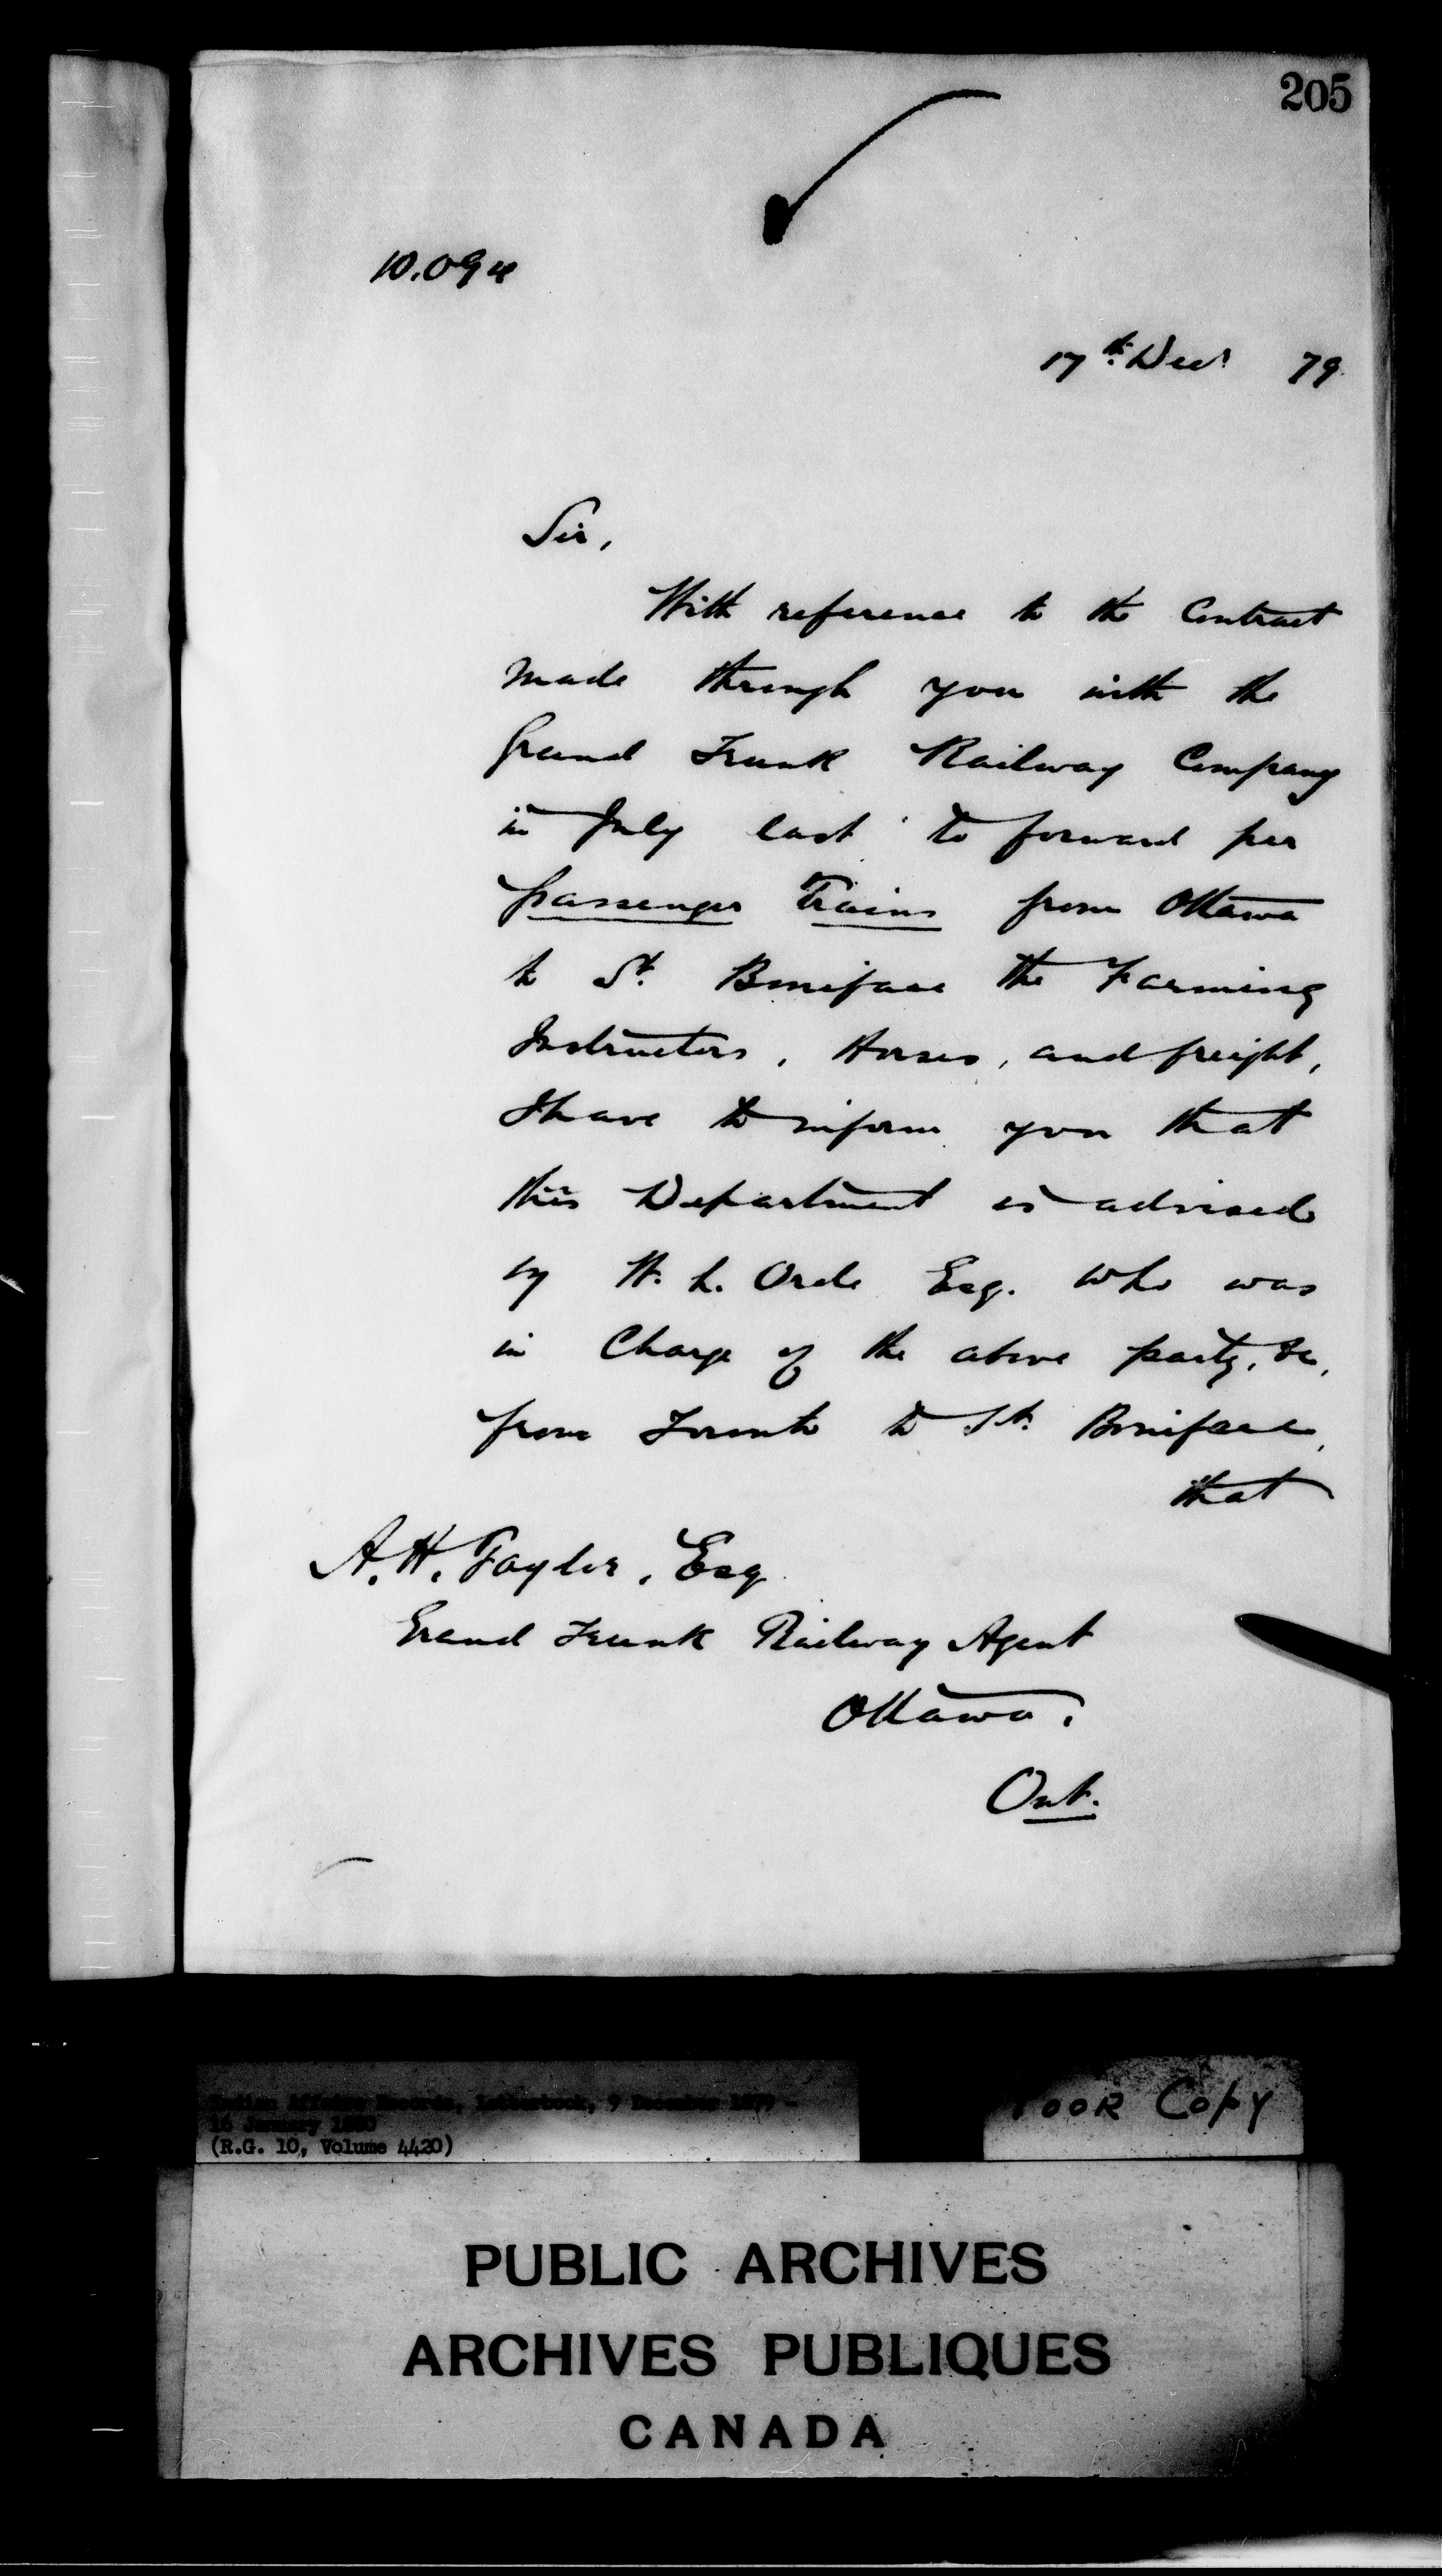 205
10.094
17th Decr 79
Sir,
With reference to the Contract
made through you with the
Grand Trunk Railway Company
in July last to forward per
passenger Trains from Ottawa
to St. Boniface the Farming
Instructors, Horses, and freight,
I have to inform you that
this Department is advised
by W. L. Orde Esq. who was
in Charge of the above party, &c,
from Toronto to St. Boniface,
that
A. H. Taylor, Esq
Grand Trunk Railway Agent
Ottawa,
Ont.
Indian Affairs Records, Letterbook, 9 December 1879 -
16 January 1880
(R.G. 10, Volume 4420)
POOR COPY
PUBLIC ARCHIVES
ARCHIVES PUBLIQUES
CANADA